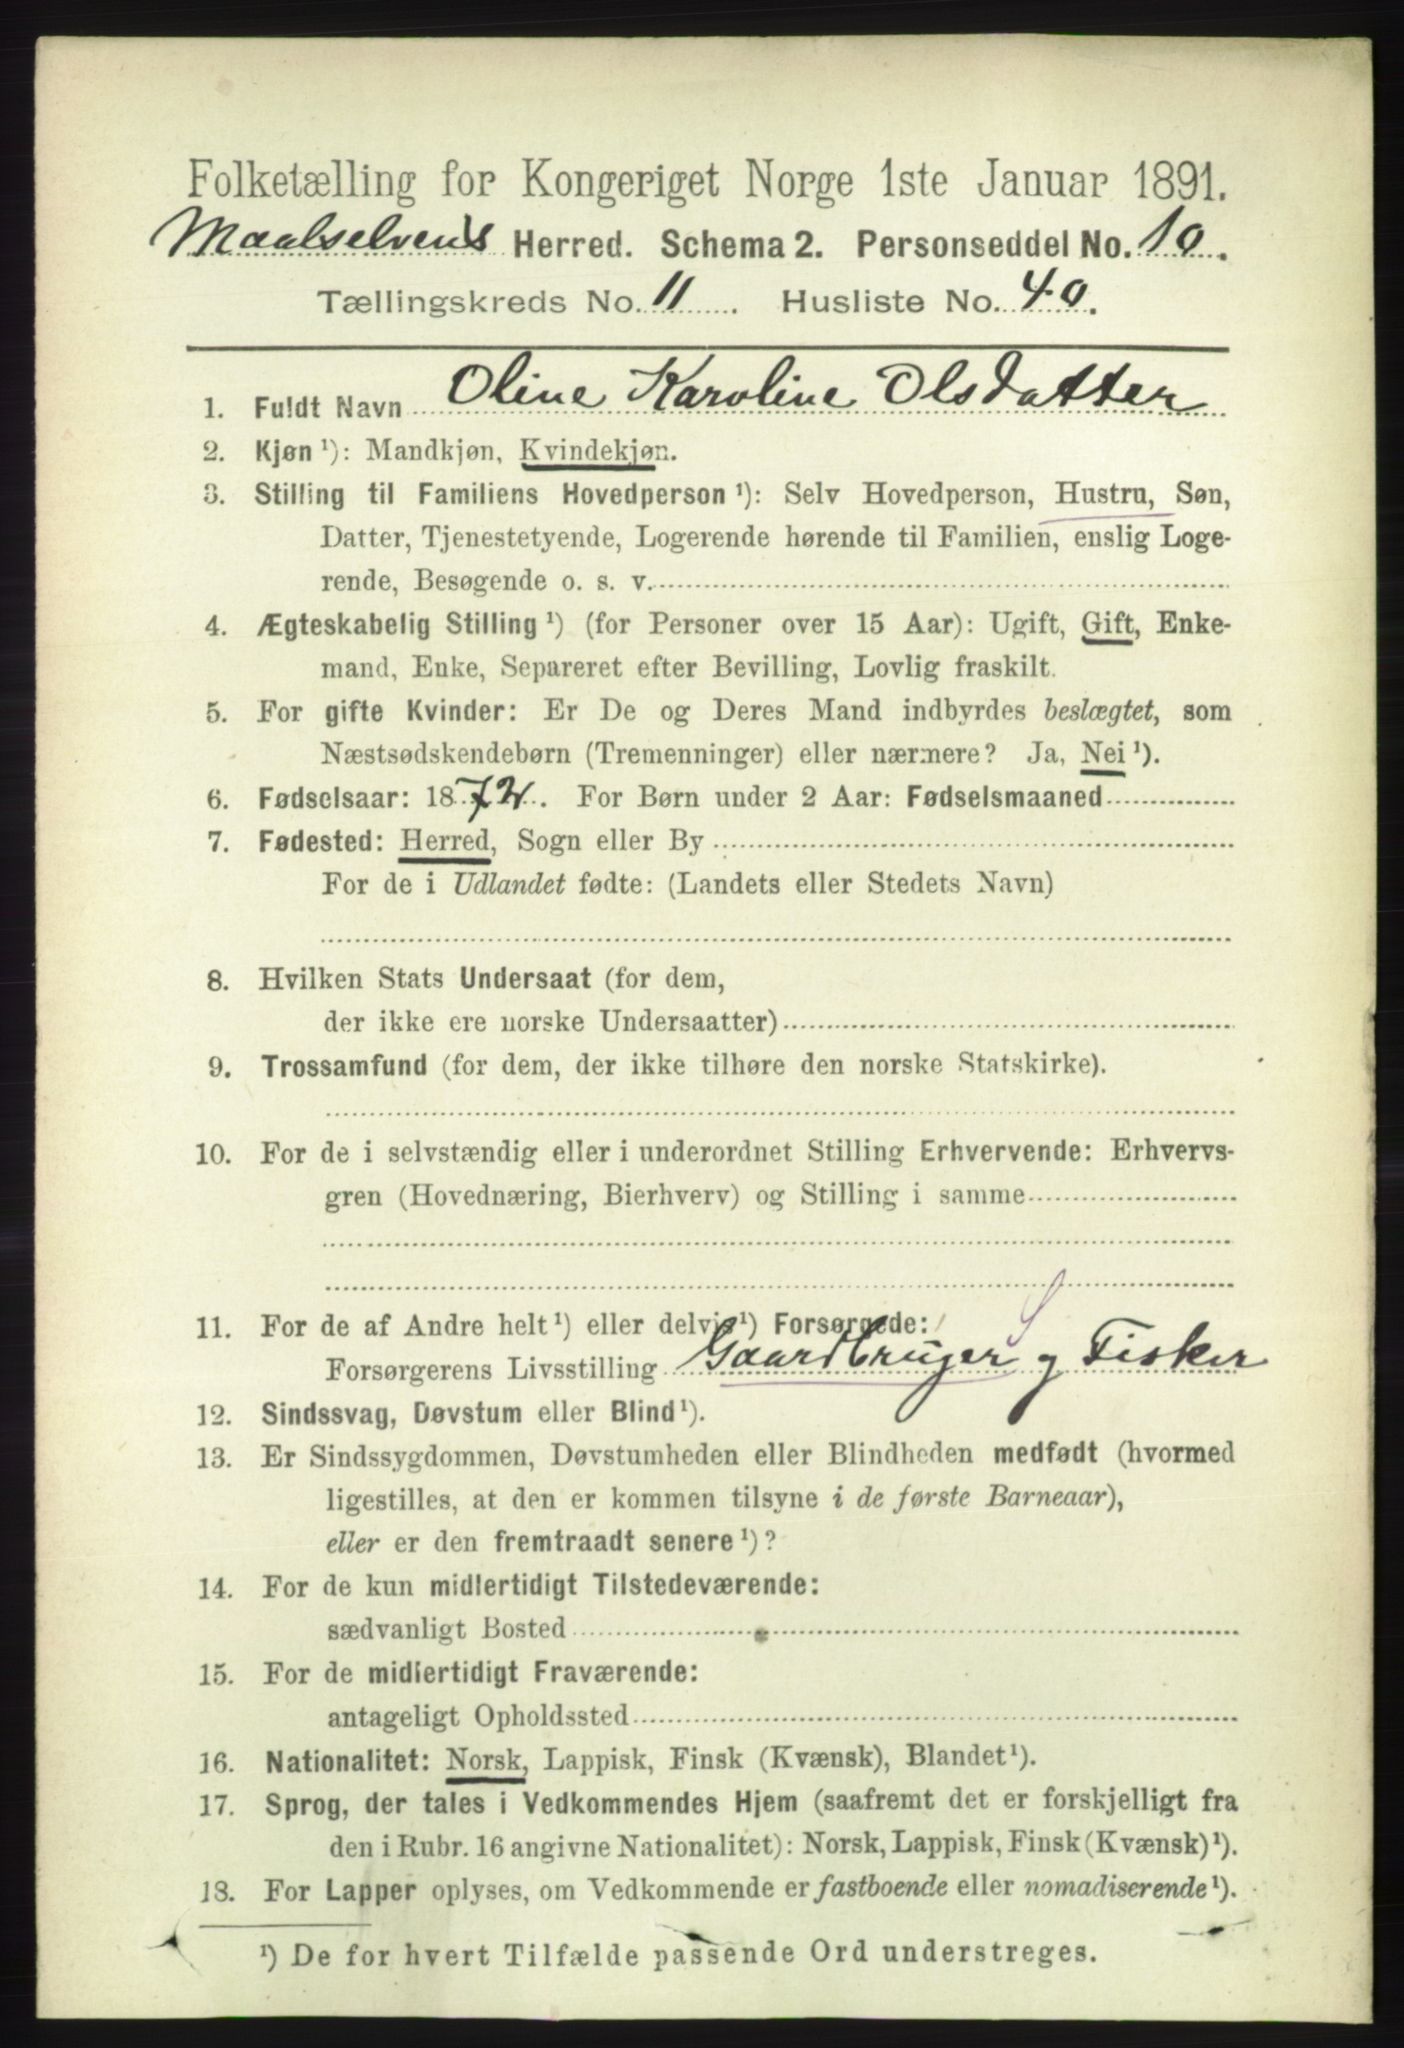 Folketælling for Kongeriget Norge 1ste Januar 1891.
Maalselvens Herred. Schema 2. Personseddel No. 10.
Tællingskreds No. 11. Husliste No. 40.
1. Fuldt Navn Oline Karoline Olsdatter
2. Kjøn ¹): Mandkjøn, Kvindekjøn.
3. Stilling til Familiens Hovedperson ¹): Selv Hovedperson, Hustru, Søn,
Datter, Tjenestetyende, Logerende hørende til Familien, enslig Loge-
rende, Besøgende o. s. v.
4. Ægteskabelig Stilling ¹) (for Personer over 15 Aar): Ugift, Gift, Enke-
mand, Enke, Separeret efter Bevilling, Lovlig fraskilt.
5. For gifte Kvinder: Er De og Deres Mand indbyrdes beslægtet, som
Næstsødskendebørn (Tremenninger) eller nærmere? Ja, Nei ¹).
6. Fødselsaar: 1872. For Børn under 2 Aar: Fødselsmaaned
7. Fødested: Herred, Sogn eller By
For de i Udlandet fødte: (Landets eller Stedets Navn)
8. Hvilken Stats Undersaat (for dem,
der ikke ere norske Undersaatter)
9. Trossamfund (for dem, der ikke tilhøre den norske Statskirke).
10. For de i selvstændig eller i underordnet Stilling Erhvervende: Erhvervs-
gren (Hovednæring, Bierhverv) og Stilling i samme
11. For de af Andre helt ¹) eller delvis ¹) Forsørgede: S
Forsørgerens Livsstilling Gaardbruger og Fisker
12. Sindssvag, Døvstum eller Blind ¹).
13. Er Sindssygdommen, Døvstumheden eller Blindheden medfødt (hvormed
ligestilles, at den er kommen tilsyne i de første Barneaar),
eller er den fremtraadt senere ¹)?
14. For de kun midlertidigt Tilstedeværende:
sædvanligt Bosted
15. For de midlertidigt Fraværende:
antageligt Opholdssted
16. Nationalitet: Norsk, Lappisk, Finsk (Kvænsk), Blandet ¹).
17. Sprog, der tales i Vedkommendes Hjem (saafremt det er forskjelligt fra
den i Rubr. 16 angivne Nationalitet): Norsk, Lappisk, Finsk (Kvænsk) ¹).
18. For Lapper oplyses, om Vedkommende er fastboende eller nomadiserende ¹).
¹) De for hvert Tilfælde passende Ord understreges.